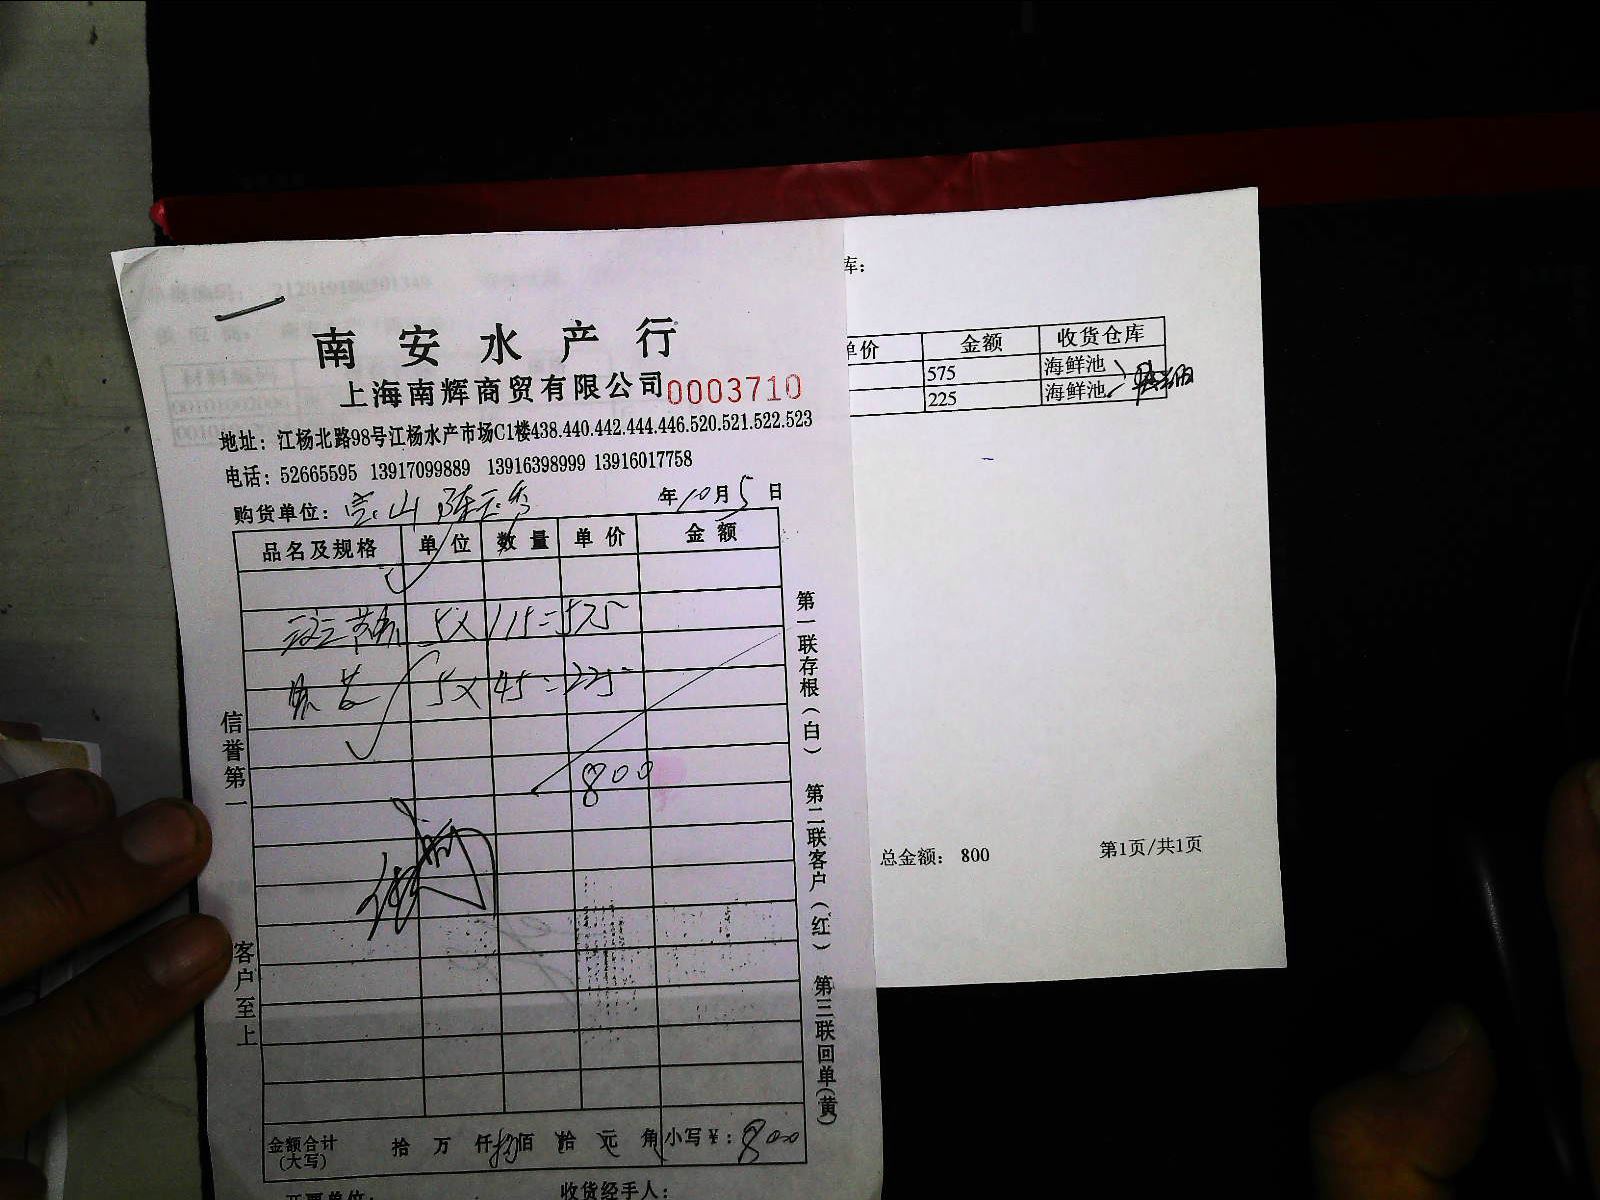 南安水产行
上海南辉商贸有限公司0003710
地址：江杨北路98号江杨水产市场C1楼438.440.442.444.446.520.521.522.523
电话：52665595 13917099889 13916398999 13916017758
购货单位：宝山 年10月5日
品名及规格 单位 数量 单价 金额
5X 115=575
5X 45=225
800
金额合计(大写) 拾 万 仟 捌佰 拾 元 角 小写￥：800
收货经手人：
信誉第一
客户至上
第一联存根(白) 第二联客户(红) 第三联回单(黄)
库：
单价 金额 收货仓库
575 海鲜池
225 海鲜池
总金额： 800 第1页/共1页